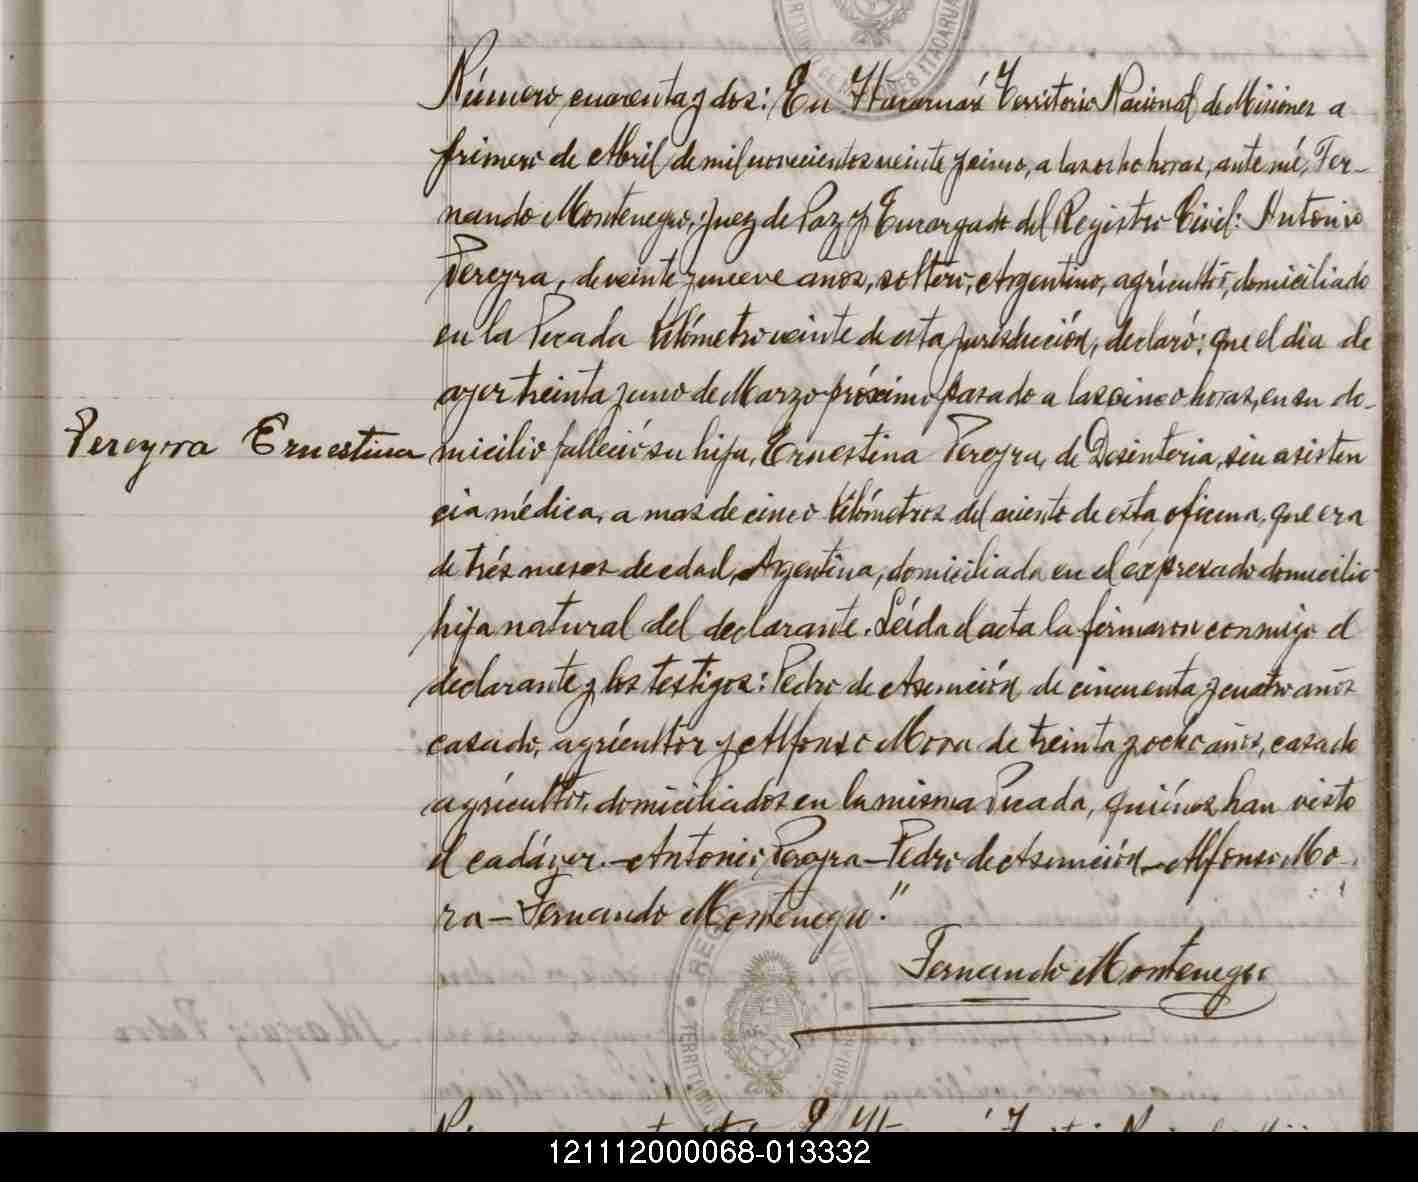 Número cuarenta y dos: En Itacaruaré Territorio Nacional de Misiones a
primero de Abril de mil novecientos veinte y cinco, a las ocho horas, ante mí, Fer-
nando Montenegro, juez de Paz y Encargado del Registro Civil: Antonio
Pereyra, de veinte y nueve anos, soltero, Argentino, agrícultor, domiciliado
en la Picada kilómetro veinte de esta jurisdicción, declaró: que el dia de
ayer treinta y uno de Marzo próximo pasado a las cinco horas, en su do-
Pereyra Ernestina
micilio falleció su hija, Ernestina Pereyra, de Desinteria, sin asisten
cia médica, a mas de cinco kilómetros del asiento de esta oficina, que era
de trés meses de edad, Argentina, domiciliada en el expresado domicilio
hija natural del declarante. Leída el acta la firmaron conmigo el
declarante y los testigos: Pedro de Asunción de cincuenta y cuatro años
casado, agrícultor y Alfonso Mora de treinta y ocho años, casado
agrícultor, domiciliados en la misma Picada, quiénes han visto
el cadáver.-Antonio Pereyra-Pedro de Asunción-Alfonso Mo-
ra-Fernando Montenegro."
Fernando Montenegro
121112000068-013332